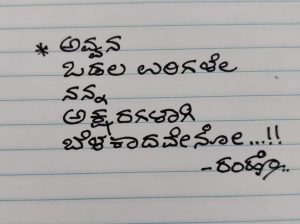 * ಅವ್ವನ
ಒಡಲ ಉರಿಗಳೇ
ನನ್ನ
ಅಕ್ಷರಗಳಾಗಿ
ಬೆಳಕಾದವೇನೋ...!!